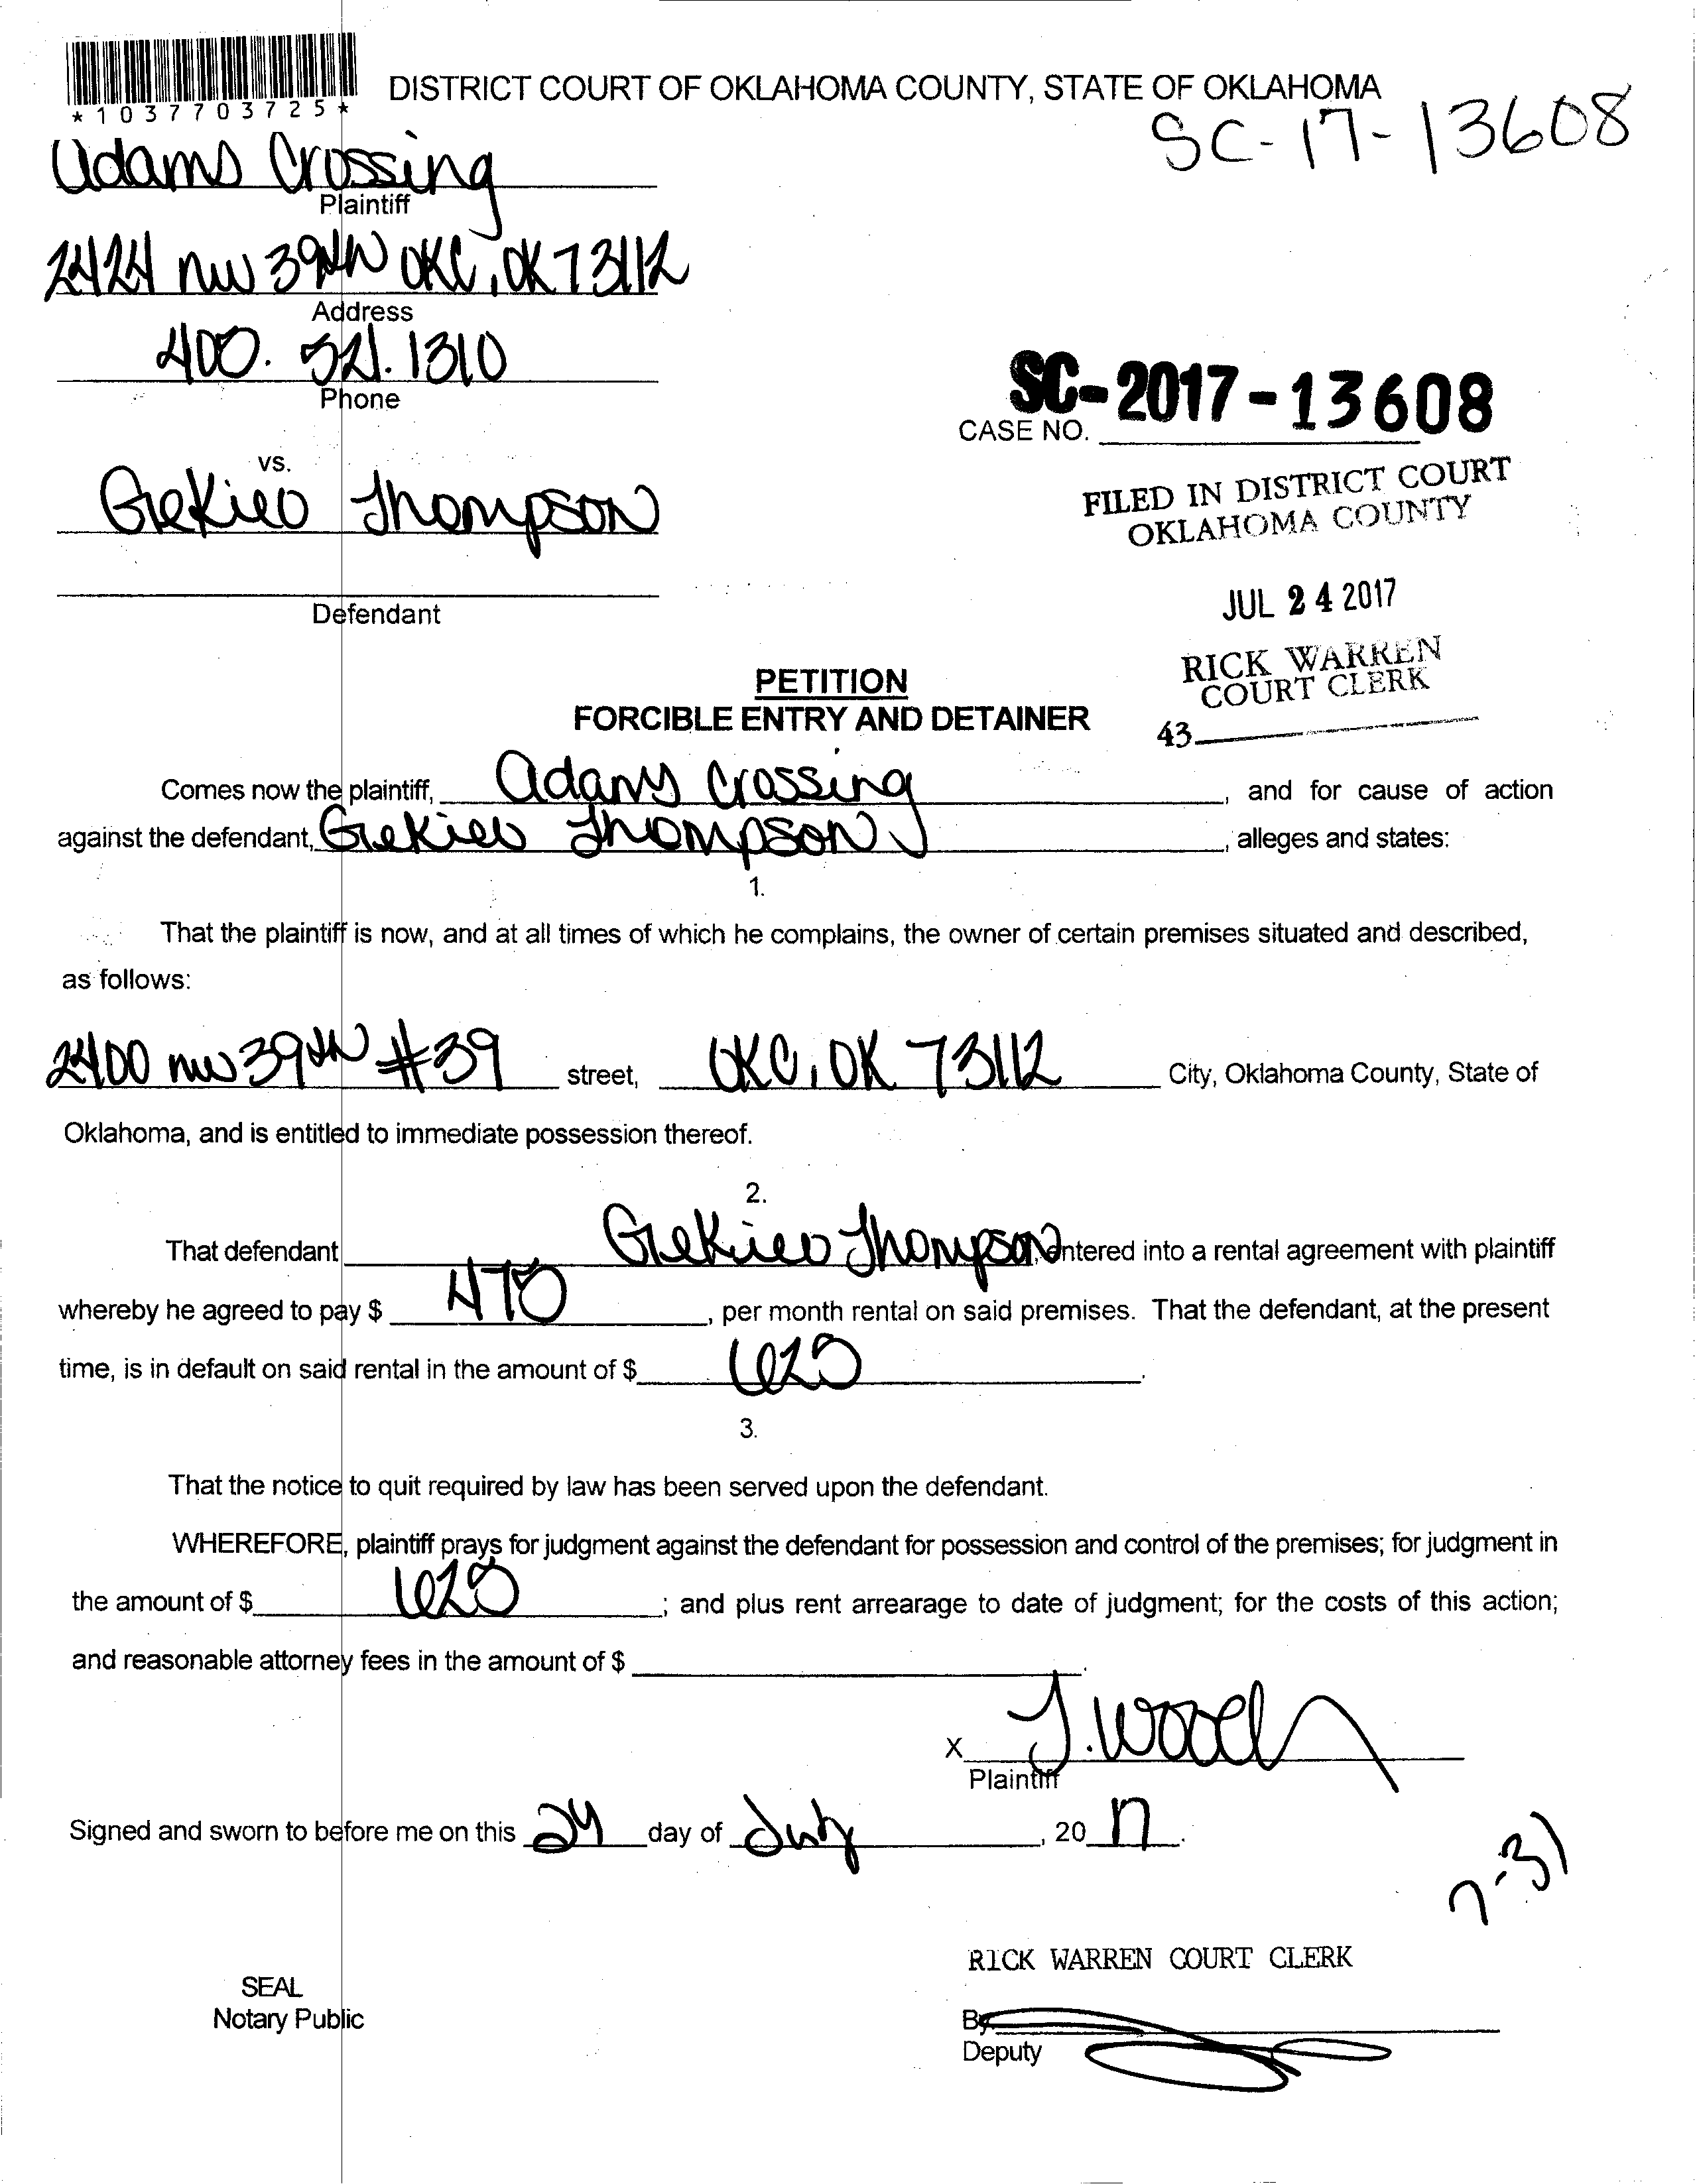 *1037703725*
DISTRICT COURT OF OKLAHOMA COUNTY, STATE OF OKLAHOMA
SC-17-13608
Adams Crossing
Plaintiff
2424 NW 39th OKC, OK 73112
Address
521.1310
Phone
SC-2017-13608
CASE NO.
vs.
Thompson
FILED IN DISTRICT COURT
OKLAHOMA COUNTY
Defendant
JUL 24 2017
RICK WARREN
COURT CLERK
43
PETITION
FORCIBLE ENTRY AND DETAINER
Comes now the plaintiff, Adams Crossing, and for cause of action
against the defendant, Thompson, alleges and states:
1.
That the plaintiff is now, and at all times of which he complains, the owner of certain premises situated and described,
as follows:
2400 NW 39th #39 street, OKC, OK 73112 City, Oklahoma County, State of
Oklahoma, and is entitled to immediate possession thereof.
2.
That defendant Thompson, entered into a rental agreement with plaintiff
whereby he agreed to pay $ 475, per month rental on said premises. That the defendant, at the present
time, is in default on said rental in the amount of $ 625.
3.
That the notice to quit required by law has been served upon the defendant.
WHEREFORE, plaintiff prays for judgment against the defendant for possession and control of the premises; for judgment in
the amount of $ 625; and plus rent arrearage to date of judgment; for the costs of this action;
and reasonable attorney fees in the amount of $.
X J. Wood
Plaintiff
Signed and sworn to before me on this 24 day of July, 20 17.
7-31
RICK WARREN COURT CLERK
SEAL
Notary Public
By:
Deputy